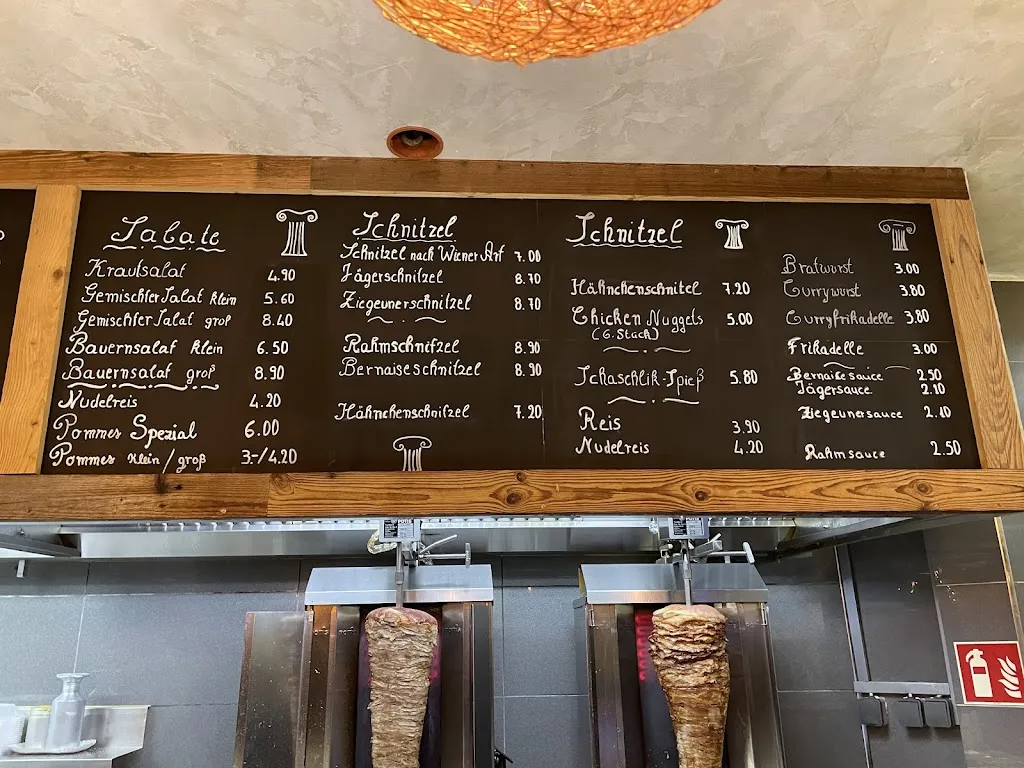 Salate
Krautsalat 4.90
Gemischter Salat klein 5.60
Gemischter Salat groß 8.40
Bauernsalat klein 6.50
Bauernsalat groß 8.90
Nudelreis 4.20
Pommes Spezial 6.00
Pommes klein/groß 3.-/4.20
Schnitzel
Schnitzel nach Wiener Art 7.00
Jägerschnitzel 8.70
Ziegeunerschnitzel 8.70
Rahmschnitzel 8.90
Bernaiseschnitzel 8.90
Hähnchenschnitzel 7.20
Schnitzel
Hähnchenschnitel 7.20
Chicken Nuggets 5.00
(6.Stück)
Schaschlik-Spieß 5.80
Reis 3.90
Nudelreis 4.20
Bratwurst 3.00
Currywurst 3.80
Curryfrikadelle 3.80
Frikadelle 3.00
Bernaise sauce 2.50
Jägersauce 2.10
Ziegeunersauce 2.10
Rahmsauce 2.50
POTIS
POTIS